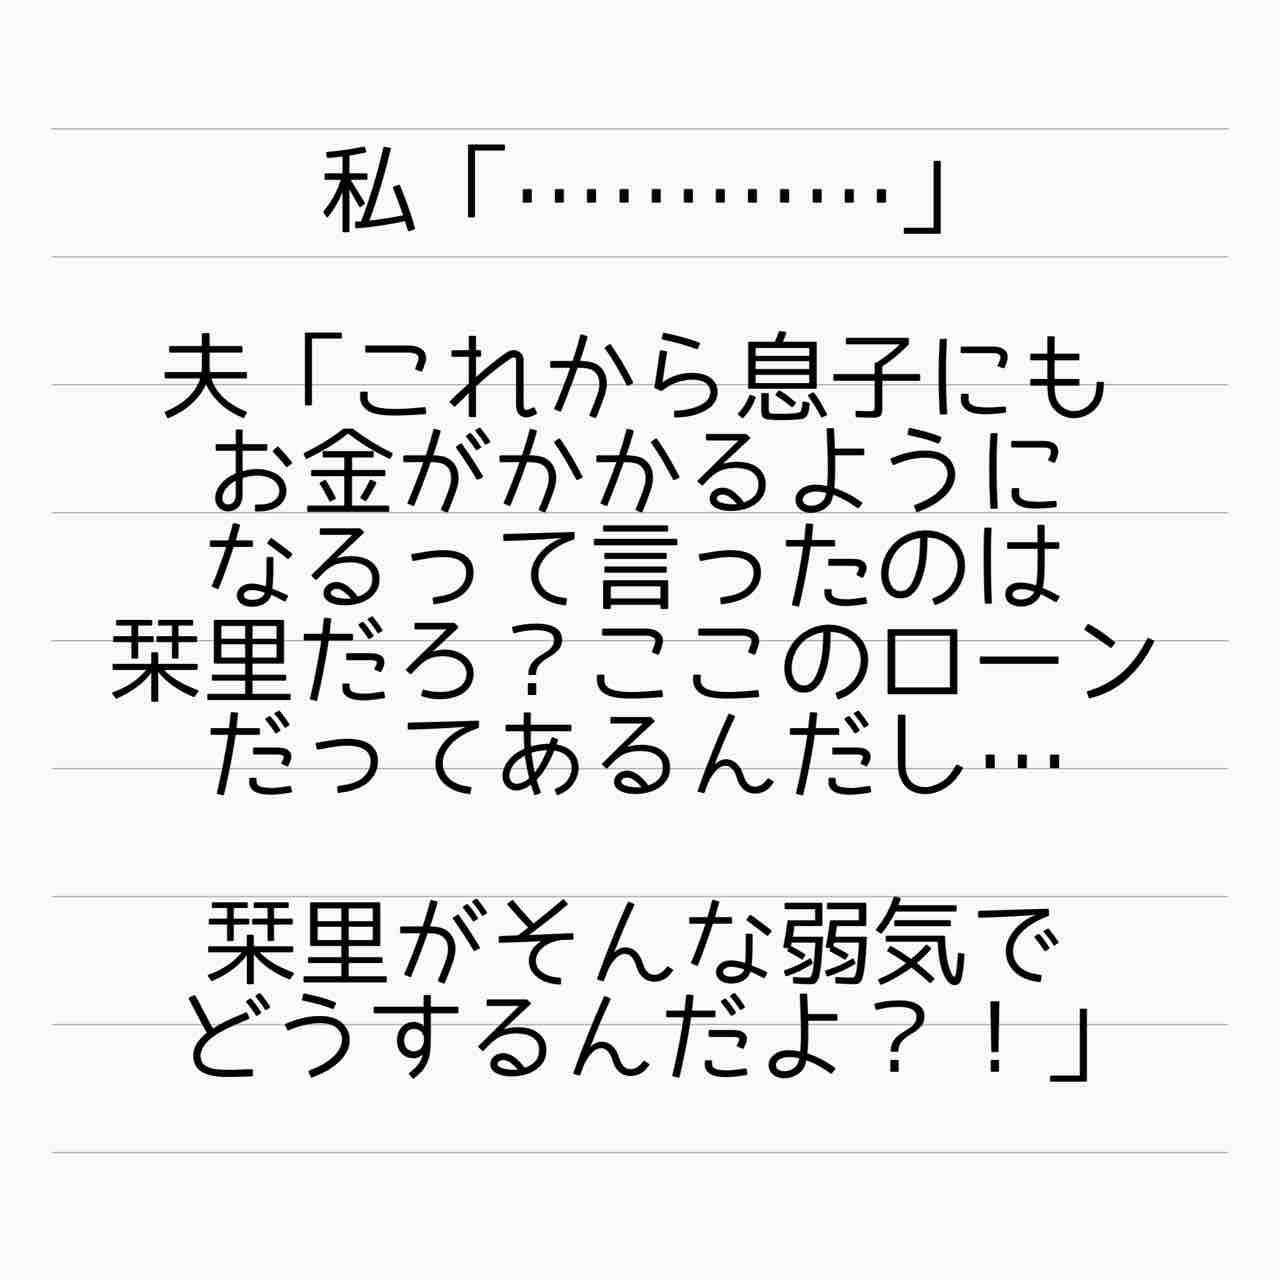 私「…………」
夫「これから息子にも
お金がかかるように
なるって言ったのは
栞里だろ？ここのローン
だってあるんだし…
栞里がそんな弱気で
どうするんだよ？！」